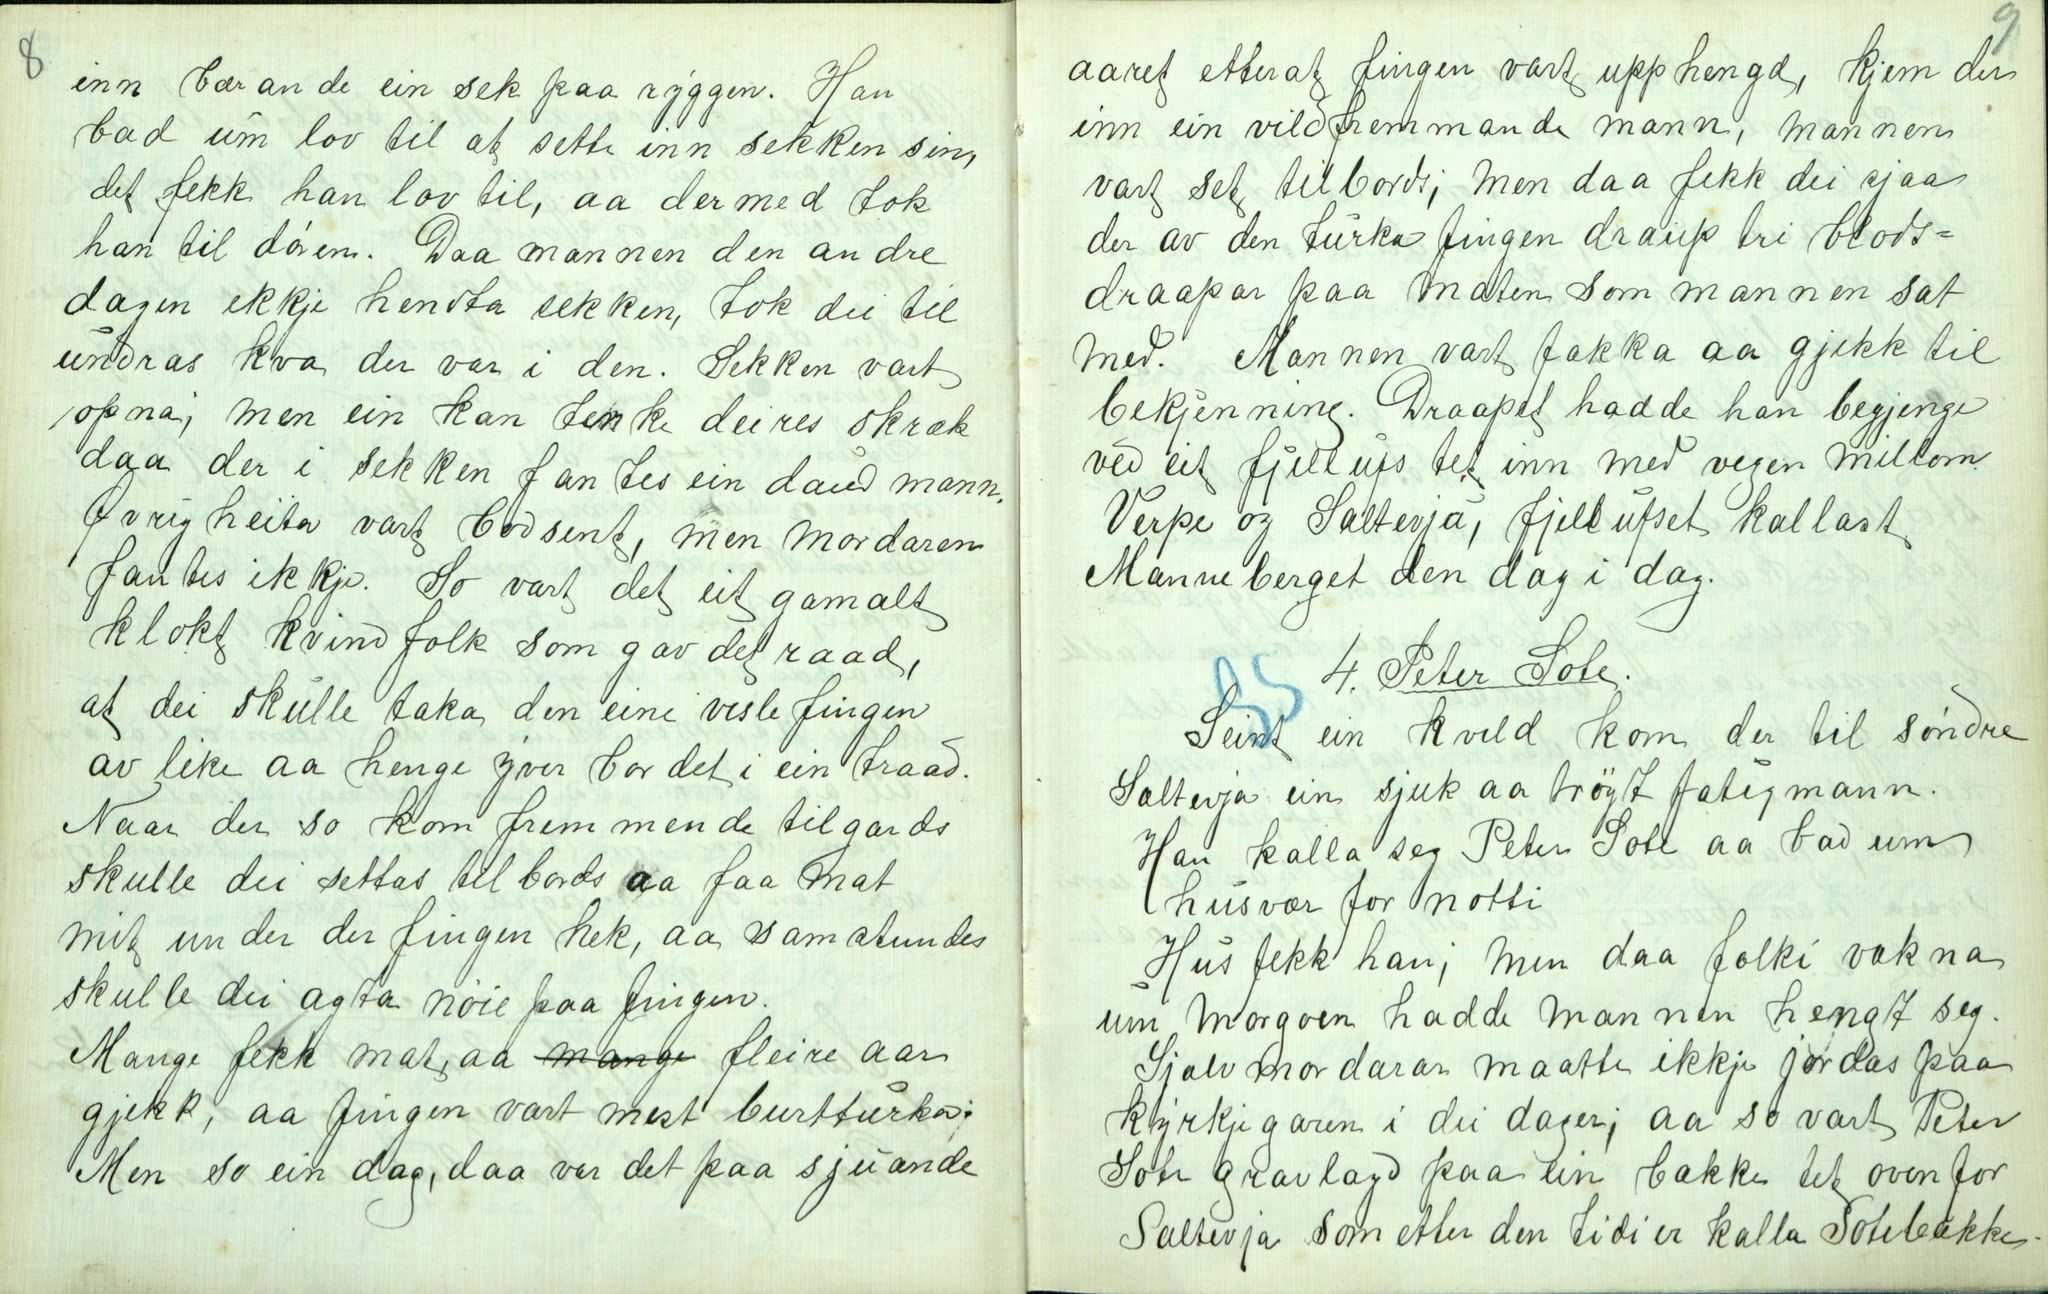 8
inn bærande ein sek paa ryggen. Han
bad um lov til at sette inn sekken sin,
det fekk han lov til, aa dermed tok
han til døren. Daa mannen den andre
dagen ekkje hendta sekken, tok dei til
undras kva der var i den. Sekken vart
opna; men ein kan tenke deires skræk
daa der i sekken fantes ein daud mann.
Øvrigheita vart bodsent, men mordaren
fantes ikkje. So vart det eit gamalt
klokt kvindfolk som gav det raad,
at dei skulle taka den eine vesle fingen
av like aa henge yver bordet i ein traad.
Naar der so kom fremmende tilgards
skulle dei settas tilbords aa faa mat
mit under der fingen hek, aa samstundes
skulle dei agta nöie paa fingen.
Mange fekk mat, aa mange fleire aar
gjekk, aa fingen vart mest burtturka;
Men so ein dag, daa var det paa sjuande
9
aaret etterat fingen vart upphengd, kjem der
inn ein vildfremmande mann, mannen
vart set tilbords; men daa fekk dei sjaa
der av den turka fingen draup tri blods=
draapar paa maten som mannen sat
med. Mannen vart fakka aa gjekk til
bekjenning. Draapet hadde han begjenge
ved eit fjellufs tet inn med vegen millom
Verpe og Saltevja, fjellufset kallast
Manneberget den dag i dag.
4. Peter Sote.
Seint ein kveld kom der til söndre
Saltevja ein sjuk aa tröyt fatigmann.
Han kalla seg Peter Sote aa bad um
husvær for notti
Hus fekk han; men daa folki vakna
um morgoen hadde mannen hengt seg.
Sjølvmordarar maatte ikkje jordas paa
kyrkjegaren i dei dager; aa so vart Peter
Sote gravlagd paa ein bakke tet ovenfor
Saltevja som etter den tidi er kalla Sotebakke.